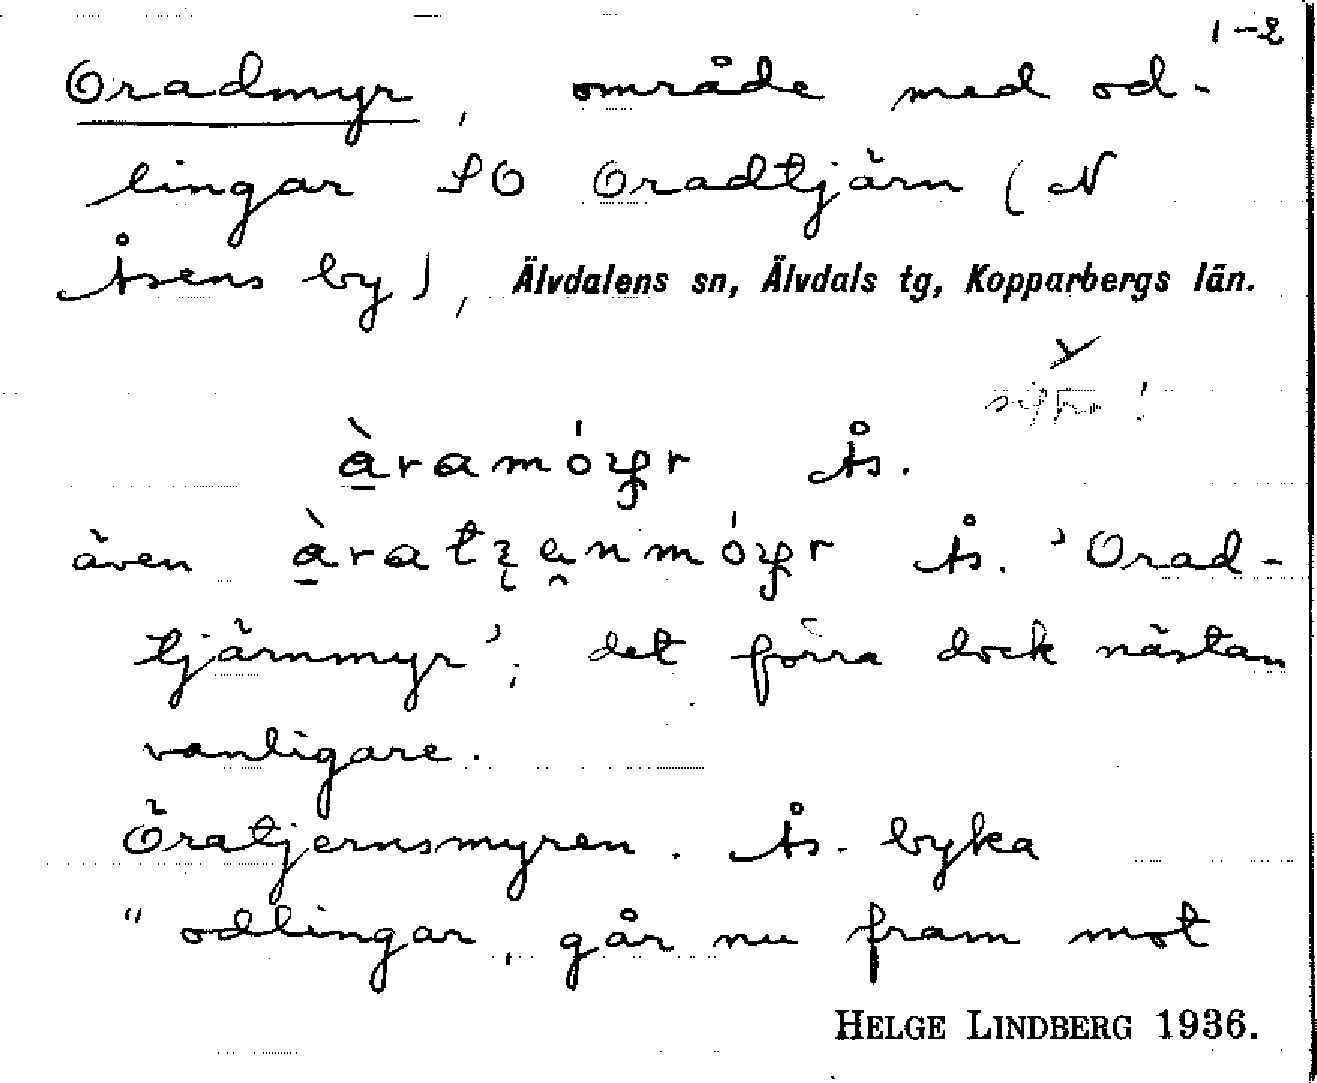 1-2
Oradmyr, område med od-
lingar SO Oradtjärn (N
Åsens by), Älvdalens sn, Älvdals tg, Kopparbergs län.
Ås.
även Ås. 'Orad-
tjärnmyr'; det förra dock nästan
vanligare.
Öratjernsmyren. Ås. byka
" odlingar, går nu fram mot
HELGE LINDBERG 1936.